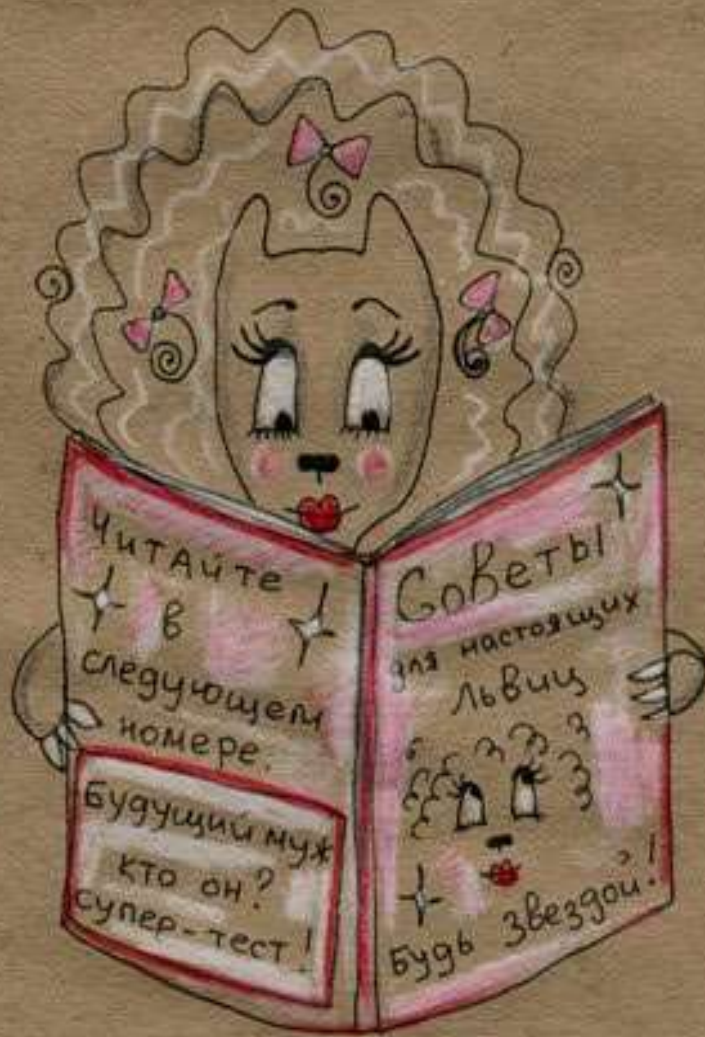 Читайте
в
следующем
номере.
Будущий муж
кто он?
супер-тест!
Советы
для настоящих
львиц
Будь звездой!